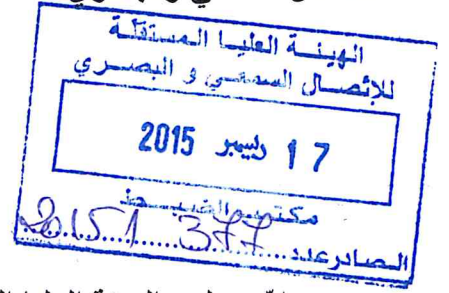 الهيئة العليا المستقلة
للإتصال السمعي و البصري
17 ديسمبر 2015
مكتب الضبط
الصادر عدد 2015/377
الهيئة العليا